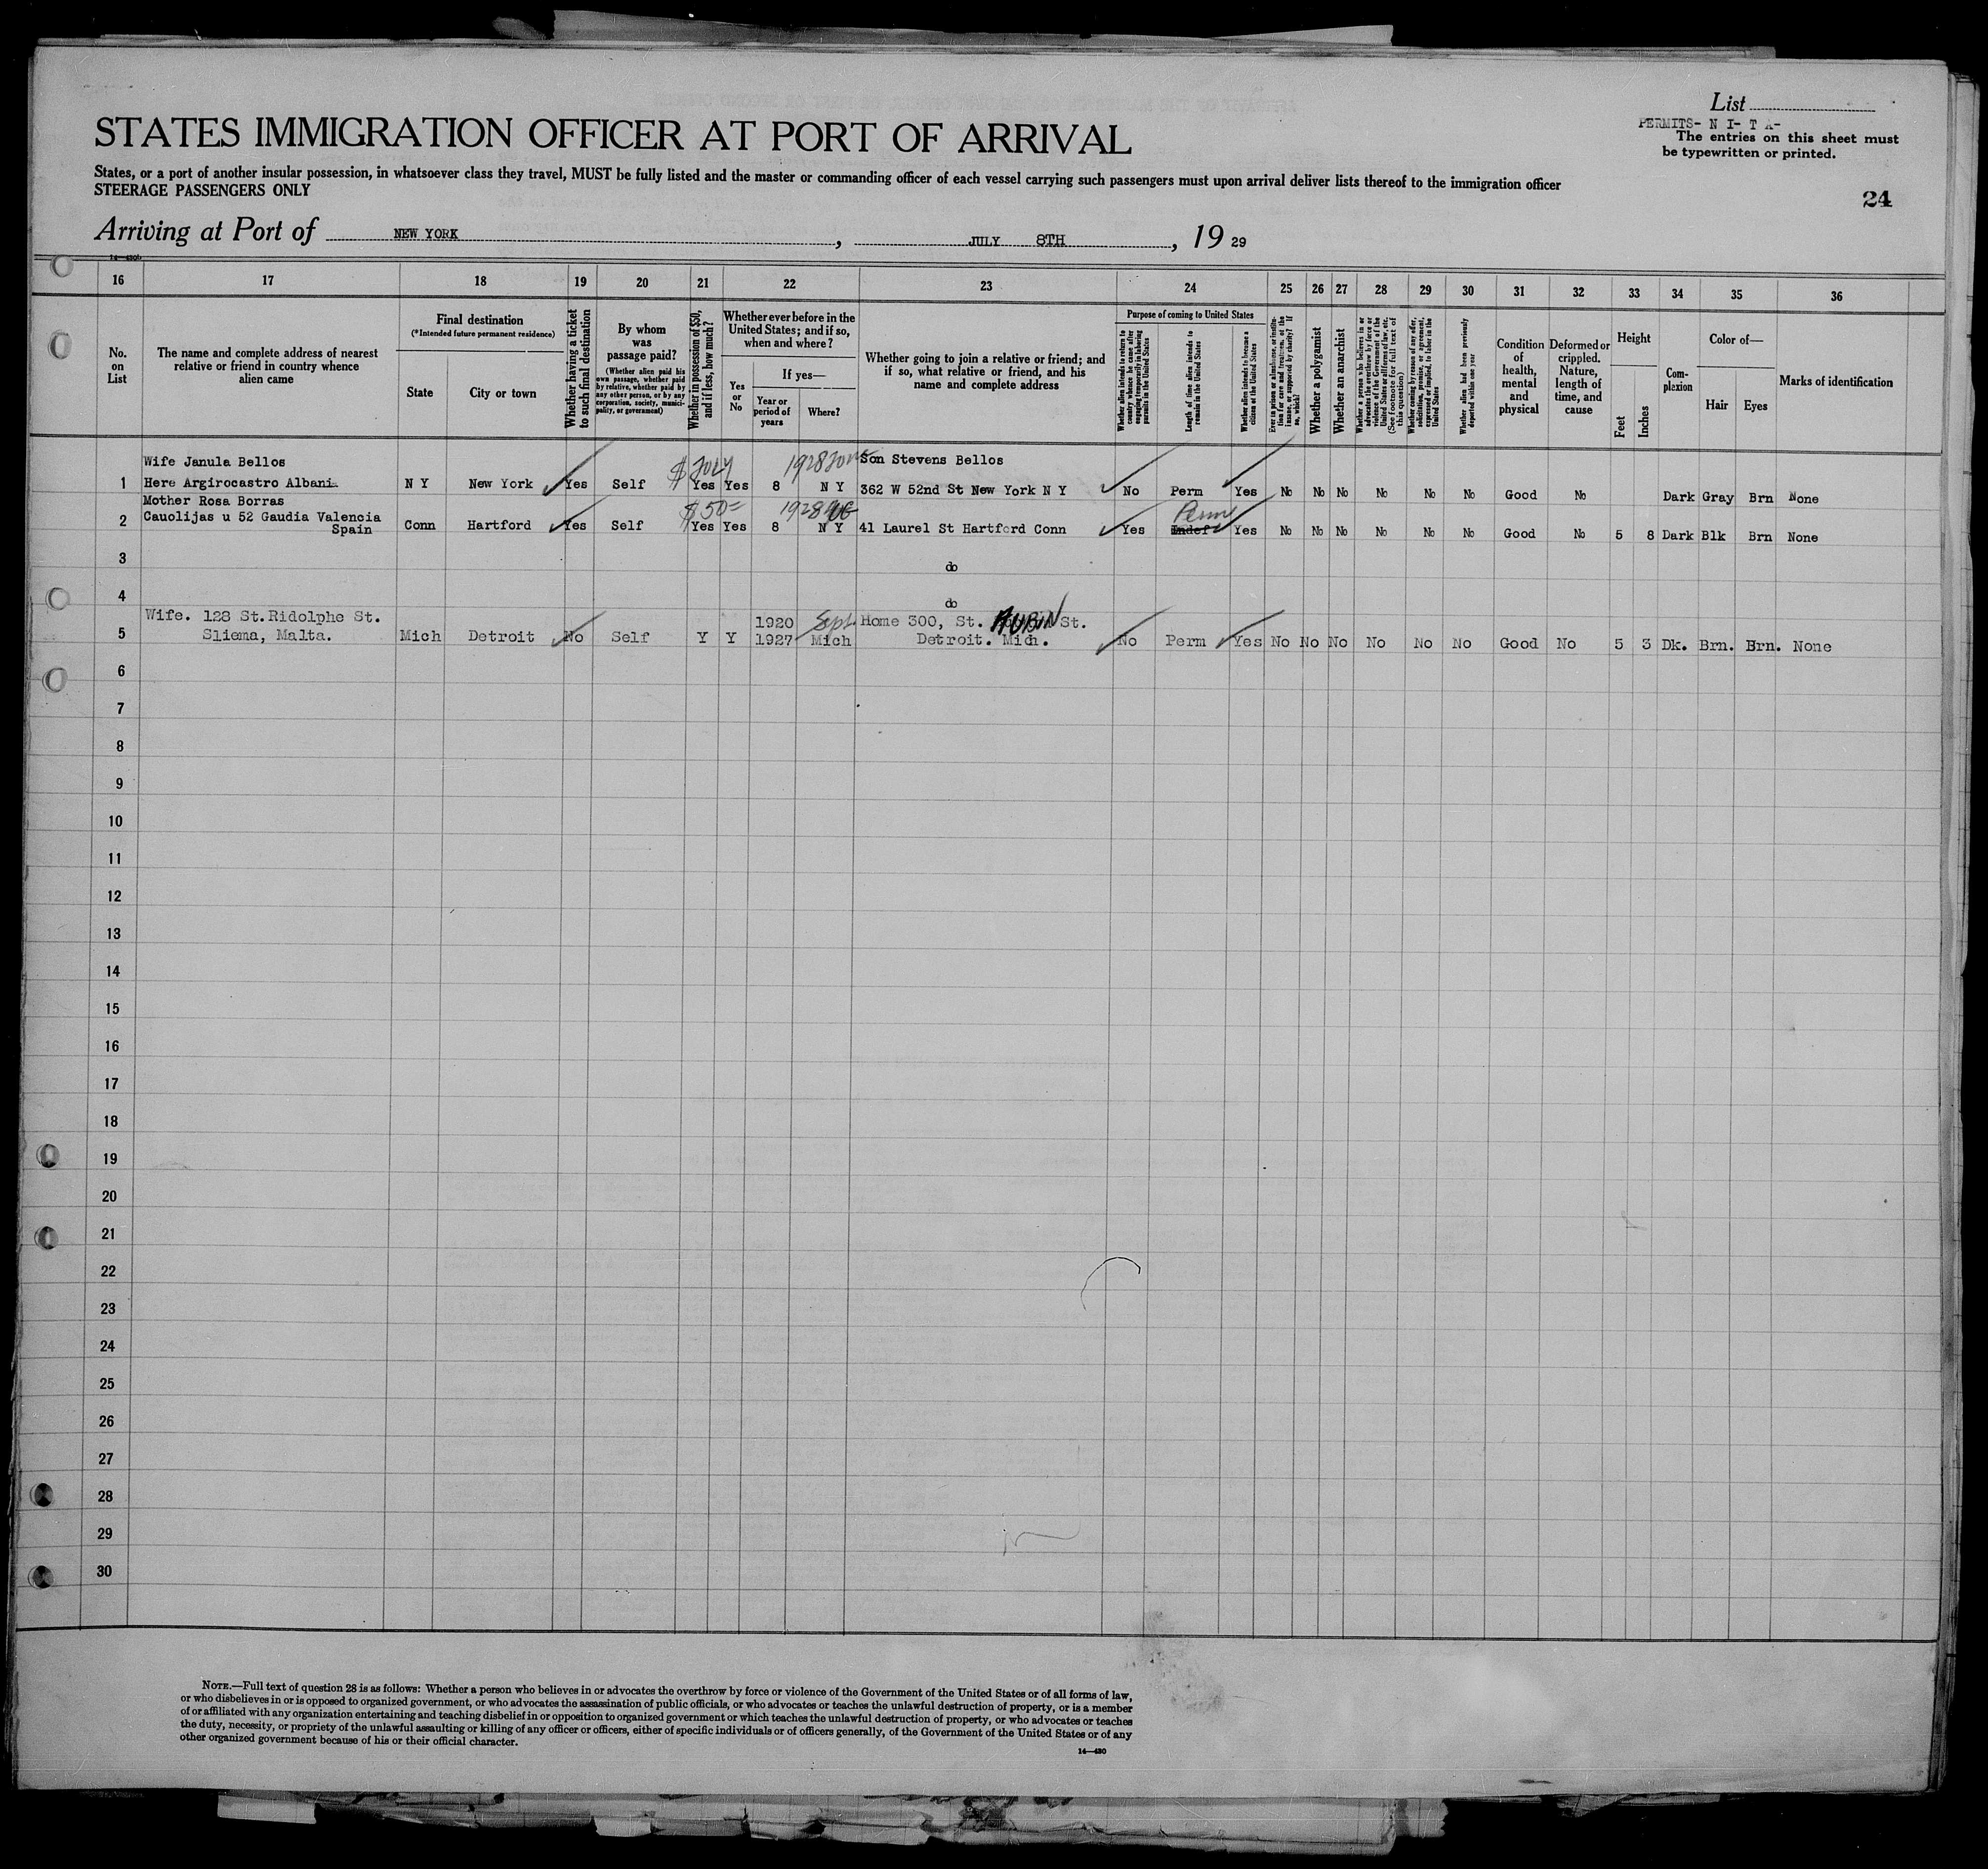 List
PERMITS- N I- T A-
The entries on this sheet must
be typewritten or printed.
STATES IMMIGRATION OFFICER AT PORT OF ARRIVAL
States, or a port of another insular possession, in whatsoever class they travel, MUST be fully listed and the master or commanding officer of each vessel carrying such passengers must upon arrival deliver lists thereof to the immigration officer
STEERAGE PASSENGERS ONLY
24
Arriving at Port of NEW YORK, JULY 8TH, 19 29
16 17 18 19 20 21 22 23 24 25 26 27 28 29 30 31 32 33 34 35 36
No.
on
List
The name and complete address of nearest
relative or friend in country whence
alien came
Final destination
(*Intended future permanent residence)
State
City or town
Whether having a ticket
to such final destination
By whom
was
passage paid?
(Whether alien paid his
own passage, whether paid
by relative, whether paid by
any other person, or by any
corporation, society, munici-
pality, or government)
Whether in possession of $50,
and if less, how much?
Whether ever before in the
United States; and if so,
when and where?
Yes
or
No
If yes—
Year or
period of
years
Where?
Whether going to join a relative or friend; and
if so, what relative or friend, and his
name and complete address
Purpose of coming to United States
Whether alien intends to return to
country whence he came after
engaging temporarily in laboring
pursuits in the United States
Length of time alien intends to
remain in the United States
Whether alien intends to become a
citizen of the United States
Ever in prison or almshouse, or institu-
tion for care and treatment of the
insane, or supported by charity? If
so, which?
Whether a polygamist
Whether an anarchist
Whether a person who believes in or
advocates the overthrow by force or
violence of the Government of the
United States or all forms of law, etc.
(See footnote for full text of
this question)
Whether coming by reason of any offer,
solicitation, promise, or agreement,
expressed or implied, to labor in the
United States
Whether alien had been previously
deported within one year
Condition
of
health,
mental
and
physical
Deformed or
crippled.
Nature,
length of
time, and
cause
Height
Feet
Inches
Com-
plexion
Color of—
Hair
Eyes
Marks of identification
Wife Janula Bellos $ 1928 Son Stevens Bellos
1 Here Argirocastro Albania N Y New York Yes Self Yes Yes 8 N Y 362 W 52nd St New York N Y No Perm Yes No No No No No No Good No Dark Gray Brn None
Mother Rosa Borras $50= 1928 Perm
2 Cauolijas u 52 Gaudia Valencia Conn Hartford Yes Self Yes Yes 8 N Y 41 Laurel St Hartford Conn Yes Indef Yes No No No No No No Good No 5 8 Dark Blk Brn None
Spain
3 do
4 do
Wife. 128 St.Ridolphe St. 1920 Sept Home 300, St. AUBIN St.
5 Sliema, Malta. Mich Detroit No Self Y Y 1927 Mich Detroit. Mich. No Perm Yes No No No No No No Good No 5 3 Dk. Brn. Brn. None
6
7
8
9
10
11
12
13
14
15
16
17
18
19
20
21
22
23
24
25
26
27
28
29
30
NOTE.—Full text of question 28 is as follows: Whether a person who believes in or advocates the overthrow by force or violence of the Government of the United States or of all forms of law,
or who disbelieves in or is opposed to organized government, or who advocates the assassination of public officials, or who advocates or teaches the unlawful destruction of property, or is a member
of or affiliated with any organization entertaining and teaching disbelief in or opposition to organized government or which teaches the unlawful destruction of property, or who advocates or teaches
the duty, necessity, or propriety of the unlawful assaulting or killing of any officer or officers, either of specific individuals or of officers generally, of the Government of the United States or of any
other organized government because of his or their official character.
14—430